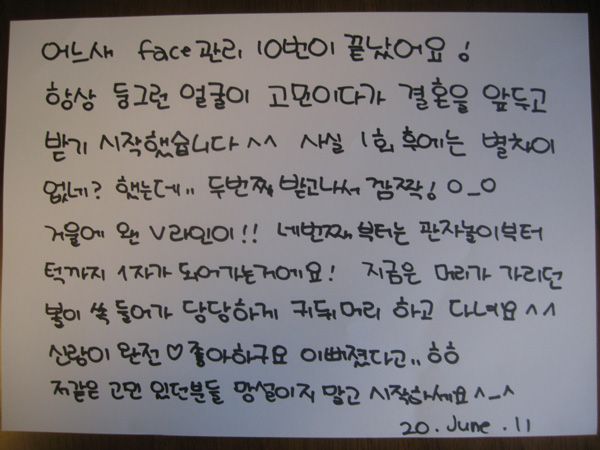 어느새 face관리 10번이 끝났어요!
항상 둥그런 얼굴이 고민이다가 결혼을 앞두고
받기 시작했습니다^^ 사실 1회 후에는 별차이
없네? 했는데.. 두번째 받고나서 깜짝! O_O
거울에 왠 V라인이!! 네번째부터는 관자놀이부터
턱까지 1자가 되어가는거에요! 지금은 머리가 가리던
볼이 쏙 들어가 당당하게 귀뒤머리 하고 다녀요^^
신랑이 완전♡좋아하구요 이뻐졌다고..ㅎㅎ
저같은 고민 있던분들 망설이지 말고 시작하세요^_^
20. June. 11